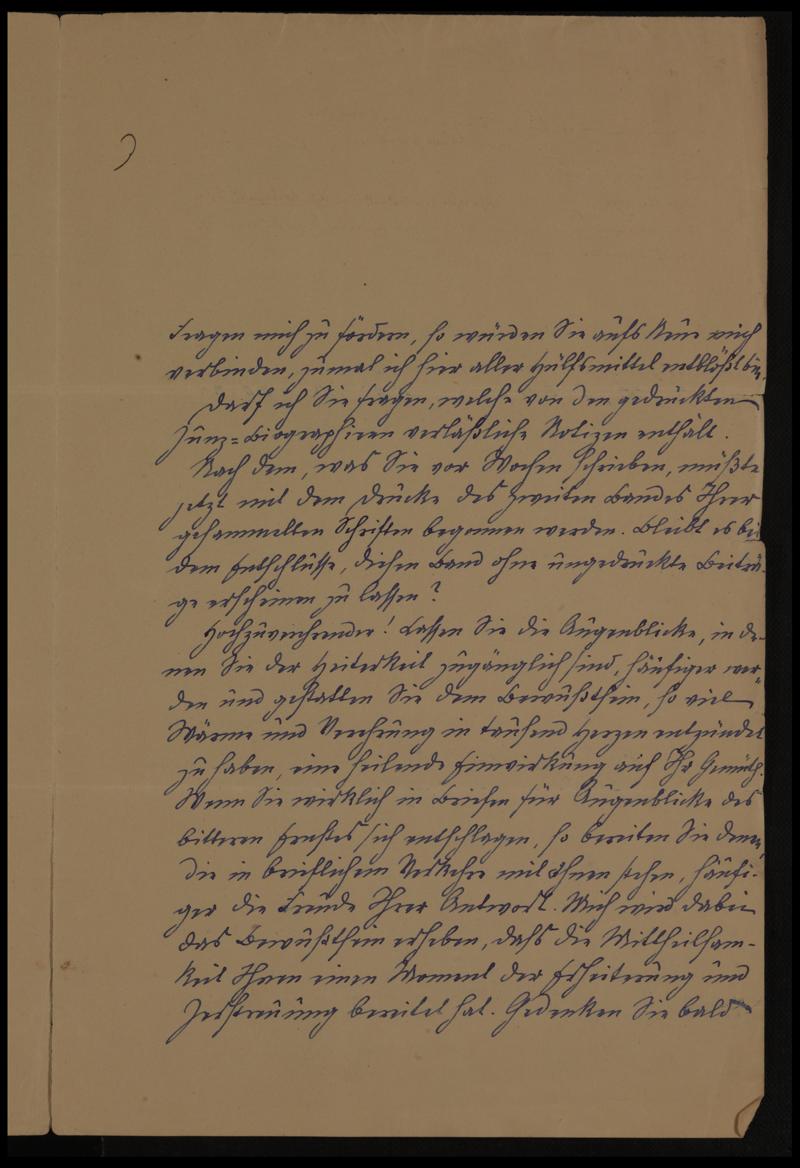 Fragen mich zu fördern, so würden Sie aufs Neue mich
verbinden, zumal ich hier aller Hülfsmittel entblößt bin.
Darf ich Sie fragen, welche von den gedruckten
Zunz=Biographieen verläßliche Notizen enthält.
Nach dem, was Sie vor Wochen schrieben, müßte
jetzt mit dem Drucke des zweiten Bandes Ihrer
gesammelten Schriften begonnen werden. Bleibt es bei
dem Entschlusse, diesen Band ohne ungedruckte Beiträ-
ge erscheinen zu lassen?
Hochzuverehrender! Lassen Sie die Augenblicke, in de-
nen Sie der Heiterkeit zugänglich sind, häufiger wer-
den und gestatten Sie dem Bewußtsein, so viel
Wärme und Verehrung in tausend Herzen entzündet
zu haben, eine heilende Einwirkung auf Ihr Gemüth.
Wenn Sie wirklich in Briefen für Augenblicke des
bitteren Ernstes sich entschlagen, so bereiten Sie denen,
die in brieflichem Verkehre mit Ihnen stehen, häufi-
ger die Freude Ihrer Antwort. Mich wird dabei
das Bewußtsein erheben, daß die Mittheilsam-
keit Ihnen einen Moment der Erheiterung und
Zerstreuung bereitet hat. Gedenken Sie bald